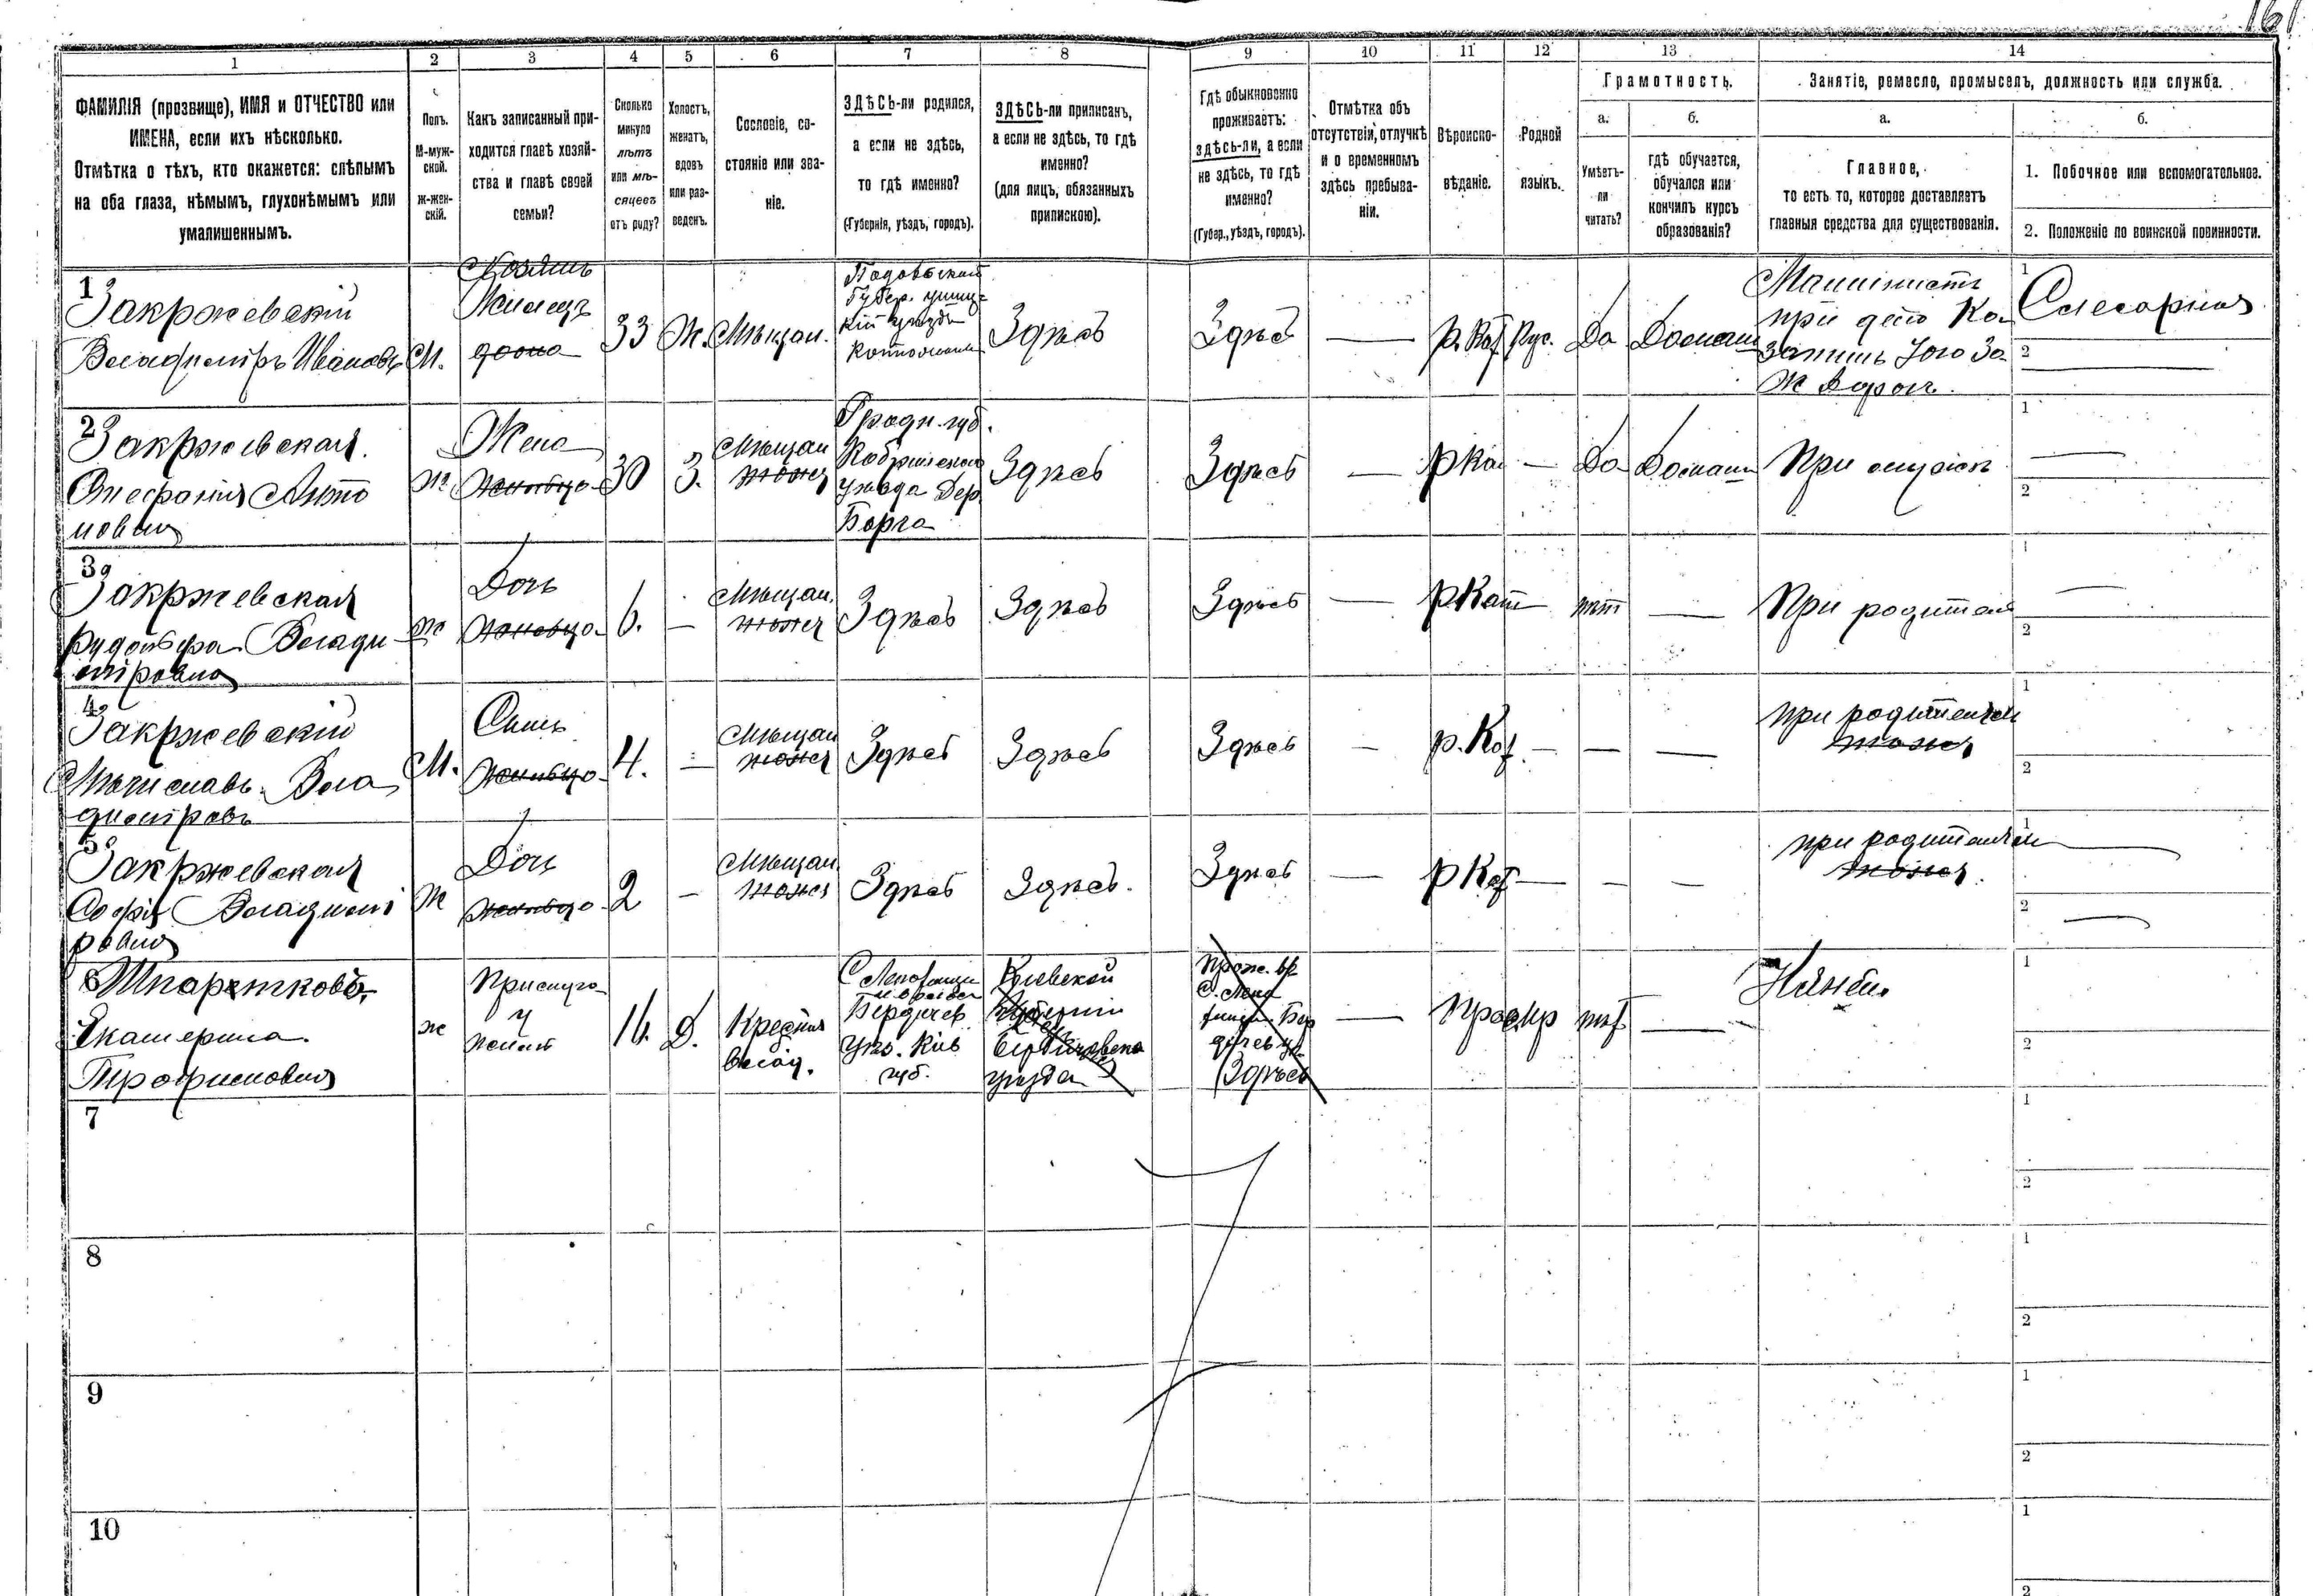 161
1 2 3 4 5 6 7 8 9 10 11 12 13 14
ФАМИЛІЯ (прозвище), ИМЯ и ОТЧЕСТВО или
ИМЕНА, если ихъ нѣсколько.
Отмѣтка о тѣхъ, кто окажется: слѣпымъ
на оба глаза, нѣмымъ, глухонѣмымъ или
умалишеннымъ.
Полъ.
М-муж-
ской.
ж-жен-
скій.
Какъ записанный при-
ходится главѣ хозяй-
ства и главѣ своей
семьи?
Сколько
минуло
лѣтъ
или мѣ-
сяцевъ
отъ роду?
Холостъ,
женатъ,
вдовъ
или раз-
веденъ.
Сословіе, со-
стояніе или зва-
ніе.
ЗДѢСЬ-ли родился,
а если не здѣсь,
то гдѣ именно?
(Губернія, уѣздъ, городъ).
ЗДѢСЬ-ли приписанъ,
а если не здѣсь, то гдѣ
именно?
(для лицъ, обязанныхъ
припискою).
Гдѣ обыкновенно
проживаетъ:
здѣсь-ли, а если
не здѣсь, то гдѣ
именно?
(Губер., уѣздъ, городъ).
Отмѣтка объ
отсутствіи, отлучкѣ
и о временномъ
здѣсь пребыва-
ніи.
Вѣроиспо-
вѣданіе.
Родной
языкъ.
Грамотность.
а.
Умѣетъ-
ли
читать?
б.
гдѣ обучается,
обучался или
кончилъ курсъ
образованія?
Занятіе, ремесло, промыселъ, должность или служба.
а.
Главное,
то есть то, которое доставляетъ
главныя средства для существованія.
б.
1. Побочное или вспомогательное.
2. Положеніе по воинской повинности.
1
Закржевскій
Владиміръ Ивановъ
М.
Хозяинъ
Жилецъ
33
Ж.
Мѣщан.
Здѣсь
Здѣсь
—
р. Каѳ.
Рус.
Да
Домаш
Машинистъ
при депо Ка
затинъ Юго За
Ж Дорог.
1 Слесарня
2
2
Закржевская
Анто
нова
Ж
Жена
30
З.
Мѣщан
тоже
Гродн. губ.
Кобринскаго
уѣзда Дер
Здѣсь
Здѣсь
—
р Ка
—
Да
Домаш
При мужѣ
1
2
3
Закржевская
Рудольфа Влади
міровна
ж
Дочь
6.
—
Мѣщан.
тоже
Здѣсь
Здѣсь
Здѣсь
—
р Кат
нѣт
—
При родител
1
2
4
Закржевскій
Мечиславъ Вла
диміровъ
М.
Сынъ
4.
—
Мѣщан
тоже
Здѣсь
Здѣсь
Здѣсь
—
р. Каѳ.
—
—
—
при родителях
тоже
1
2
5
Закржевская
Софія Владимі
ровна
Ж
Дочь
2
—
Мѣщан.
тоже
Здѣсь
Здѣсь.
Здѣсь
—
р Каѳ
—
—
—
при родителях
тоже
1
2
6
Екатерина
Трофимовна
ж
Прислуга
у
16.
Д.
Бердичев
уѣз. Кіев
губ.
Кіевской
Губерніи
уѣзда
Здѣсь
—
—
1
2
7
1
2
8
1
2
9
1
2
10
1
2